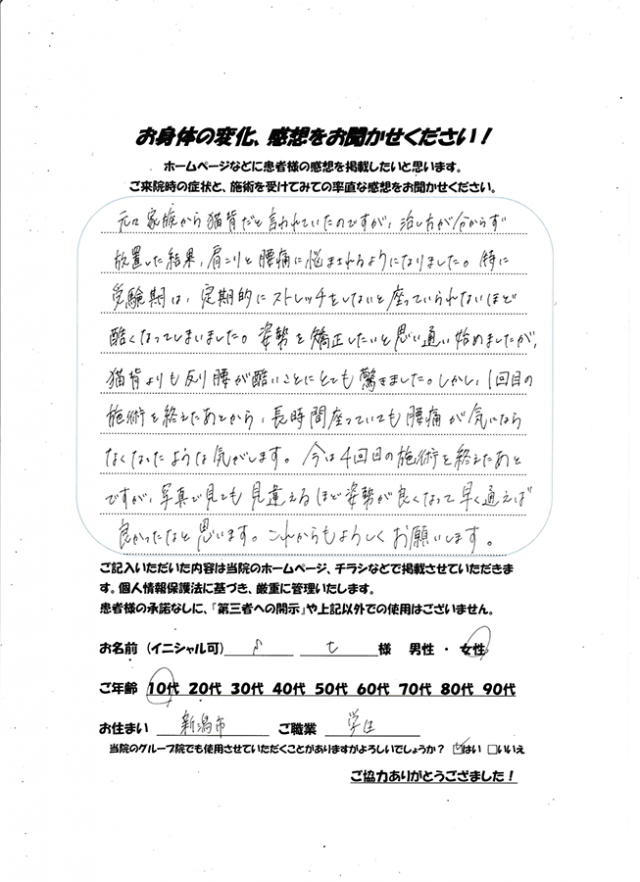 お身体の変化、感想をお聞かせください！
ホームページなどに患者様の感想を掲載したいと思います。
ご来院時の症状と、施術を受けてみての率直な感想をお聞かせください。
元々家族から猫背だと言われていたのですが、治し方が分からず
放置した結果、肩こりと腰痛に悩まされるようになりました。特に
受験期は、定期的にストレッチをしないと座っていられないほど
酷くなってしまいました。姿勢を矯正したいと思い通い始めましたが、
猫背よりも反り腰が酷いことにとても驚きました。しかし、1回目の
施術を終えたあとから、長時間座っていても腰痛が気になら
なくなったような気がします。今は4回目の施術を終えたあと
ですが、写真で見ても見違えるほど姿勢が良くなって早く通えば
良かったなと思います。これからもよろしくお願いします。
ご記入いただいた内容は当院のホームページ、チラシなどで掲載させていただきま
す。個人情報保護法に基づき、厳重に管理いたします。
患者様の承諾なしに、「第三者への開示」や上記以外での使用はございません。
お名前（イニシャル可） 様 男性・女性
ご年齢 10代 20代 30代 40代 50代 60代 70代 80代 90代
お住まい 新潟市 ご職業 学生
当院のグループ院でも使用させていただくことがありますがよろしいでしょうか？ ☑はい □いいえ
ご協力ありがとうござました！